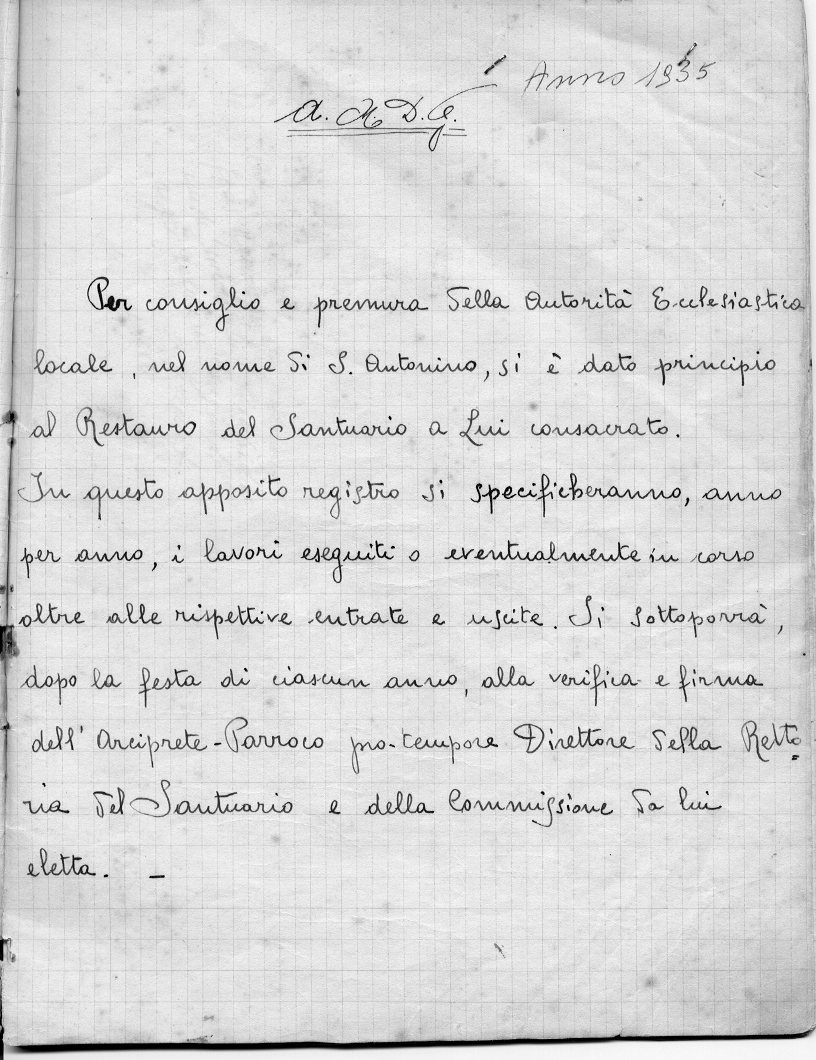 Anno 1935
A. M. D. G.
Per consiglio e premura della Autorità Ecclesiastica
locale, nel nome di S. Antonino, si è dato principio
al Restauro del Santuario a Lui consacrato.
In questo apposito registro si specificheranno, anno
per anno, i lavori eseguiti o eventualmente in corso
oltre alle rispettive entrate e uscite. Si sottoporrà,
dopo la festa di ciascun anno, alla verifica e firma
dell' Arciprete-Parroco pro-tempore Direttore della Retto
ria del Santuario e della Commissione da lui
eletta. –